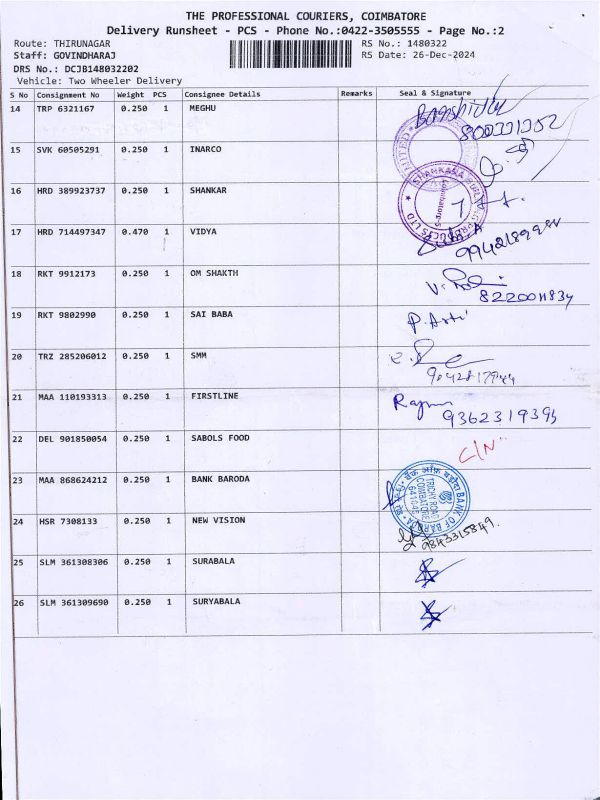 THE PROFESSIONAL COURIERS, COIMBATORE
Delivery Runsheet - PCS - Phone No.:0422-3505555 - Page No.:2
Route: THIRUNAGAR RS No.: 1480322
Staff: GOVINDHARAJ RS Date: 26-Dec-2024
DRS No.: DCJB148032202
Vehicle: Two Wheeler Delivery
S No Consignment No Weight PCS Consignee Details Remarks Seal & Signature
14 TRP 6321167 0.250 1 MEGHU
15 SVK 60505291 0.250 1 INARCO
16 HRD 389923737 0.250 1 SHANKAR
17 HRD 714497347 0.470 1 VIDYA
18 RKT 9912173 0.250 1 OM SHAKTH
8220011834
19 RKT 9802990 0.250 1 SAI BABA
P. Arti
20 TRZ 285206012 0.250 1 SMM
21 MAA 110193313 0.250 1 FIRSTLINE
9362319395
22 DEL 901850054 0.250 1 SABOLS FOOD
C/N
23 MAA 868624212 0.250 1 BANK BARODA
BANK OF BARODA
TRICHY ROAD
COIMBATORE
24 HSR 7308133 0.250 1 NEW VISION
9843315849.
25 SLM 361308306 0.250 1 SURABALA
26 SLM 361309690 0.250 1 SURYABALA